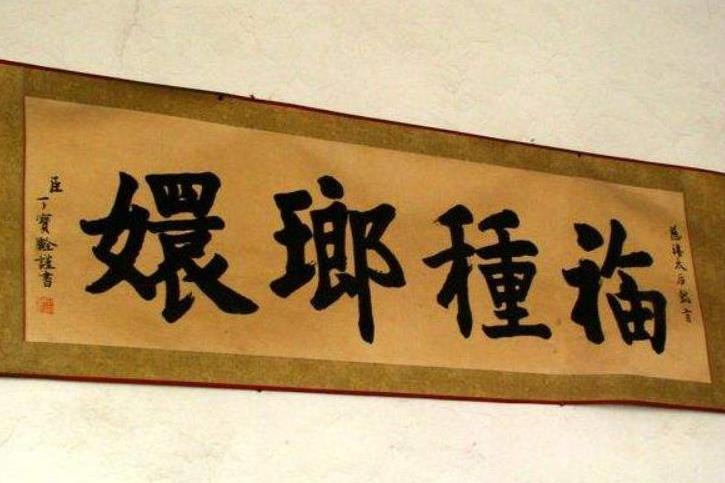 慈禧太后懿旨
福種瑯嬛
臣丁寶銓謹書